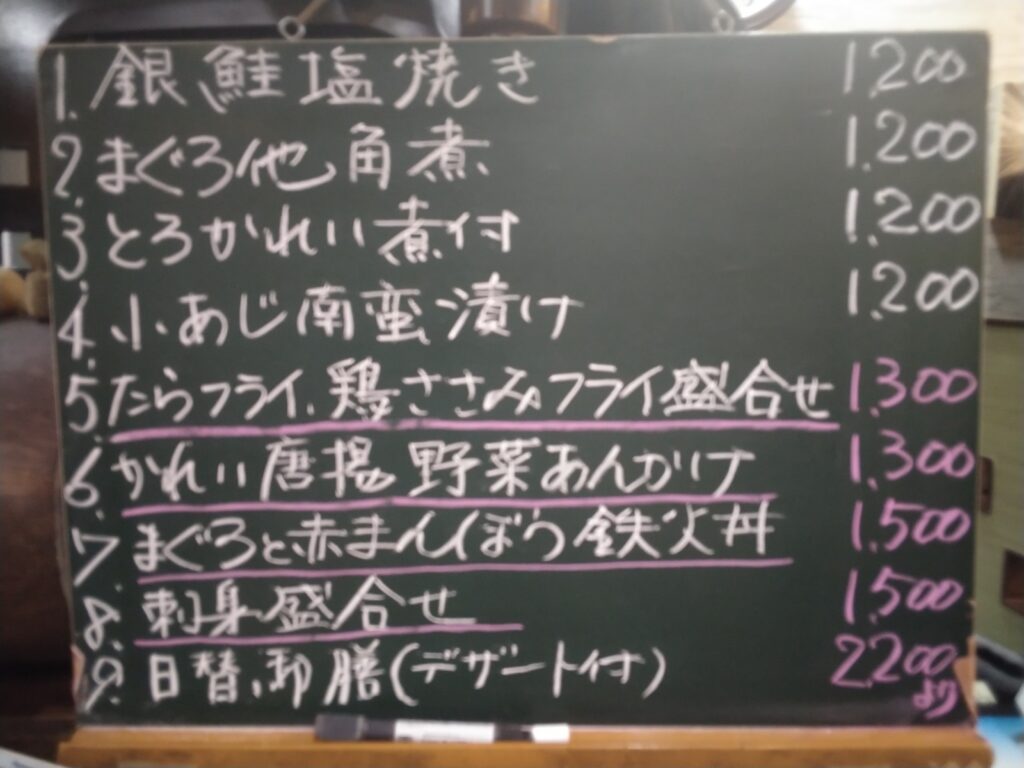 1. 銀鮭塩焼き 1,200
2. まぐろ他角煮 1,200
3. とろかれい煮付 1,200
4. 小あじ南蛮漬け 1,200
5. たらフライ、鶏ささみフライ盛合せ 1,300
6. かれい唐揚野菜あんかけ 1,300
7. まぐろと赤まんぼう鉄火丼 1,500
8. 刺身盛合せ 1,500
9. 日替御膳(デザート付) 2,200
より